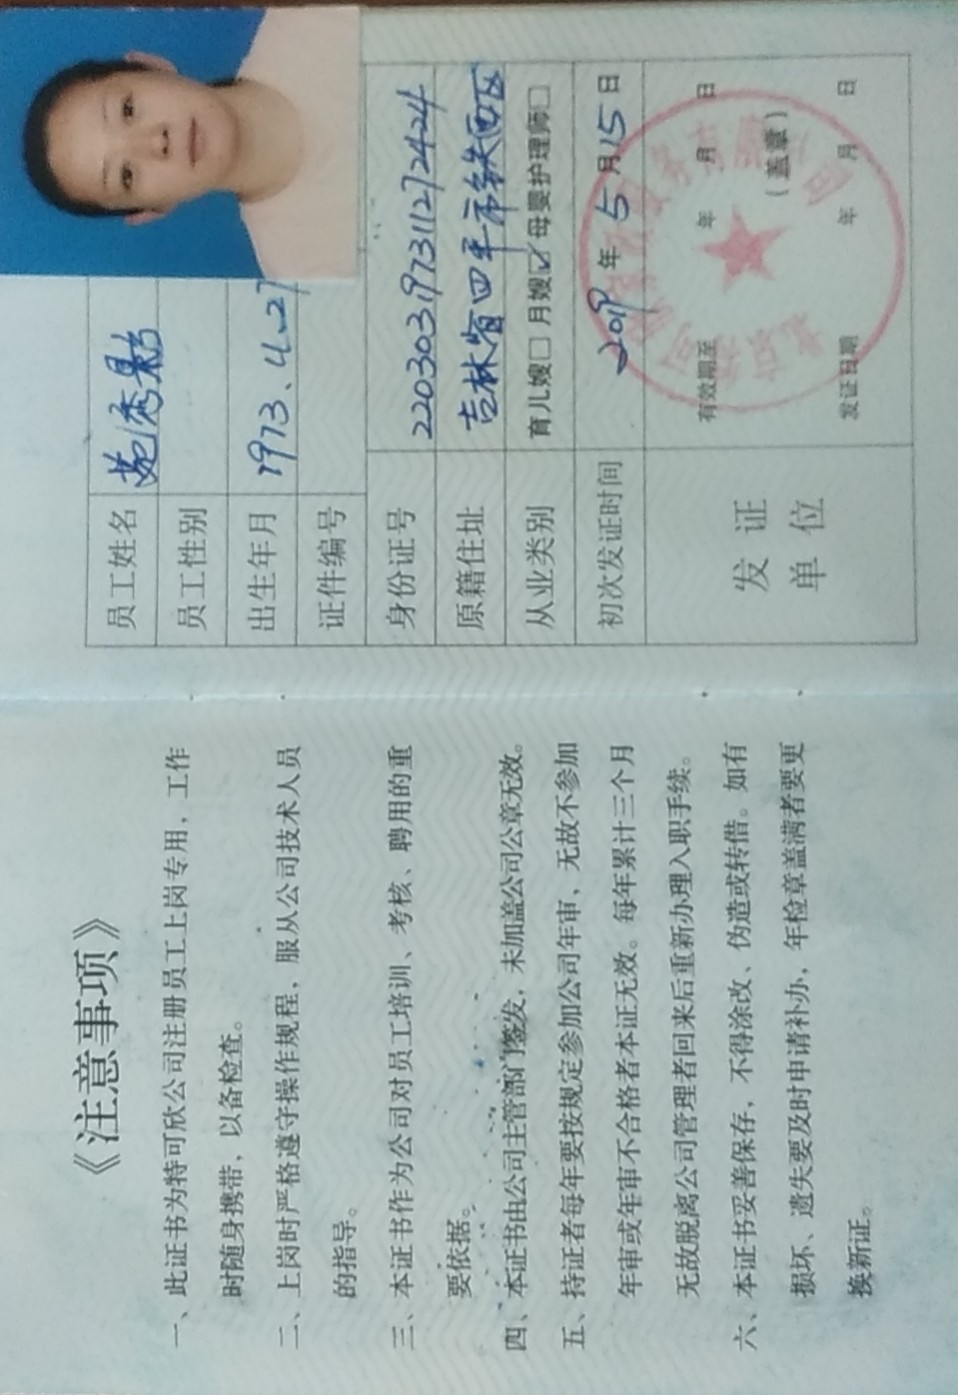 《注意事项》
一、此证书为特可欣公司注册员工上岗专用，工作
时随身携带，以备检查。
二、上岗时严格遵守操作规程，服从公司技术人员
的指导。
三、本证书作为公司对员工培训、考核、聘用的重
要依据。
四、本证书由公司主管部门签发，未加盖公司公章无效。
五、持证者每年要按规定参加公司年审，无故不参加
年审或年审不合格者本证无效。每年累计三个月
无故脱离公司管理者回来后重新办理入职手续。
六、本证书妥善保存，不得涂改、伪造或转借。如有
损坏、遗失要及时申请补办，年检章盖满者要更
换新证。
员工姓名 苑秀影
员工性别
出生年月 1973、4、27
证件编号
身份证号 220303197311272424
原籍住址 吉林省四平市铁西区
从业类别 育儿嫂□ 月嫂☑ 母婴护理师□
初次发证时间 2019年5月15日
发证
单位
有效期至 年 月 日
（盖章）
发证日期 年 月 日